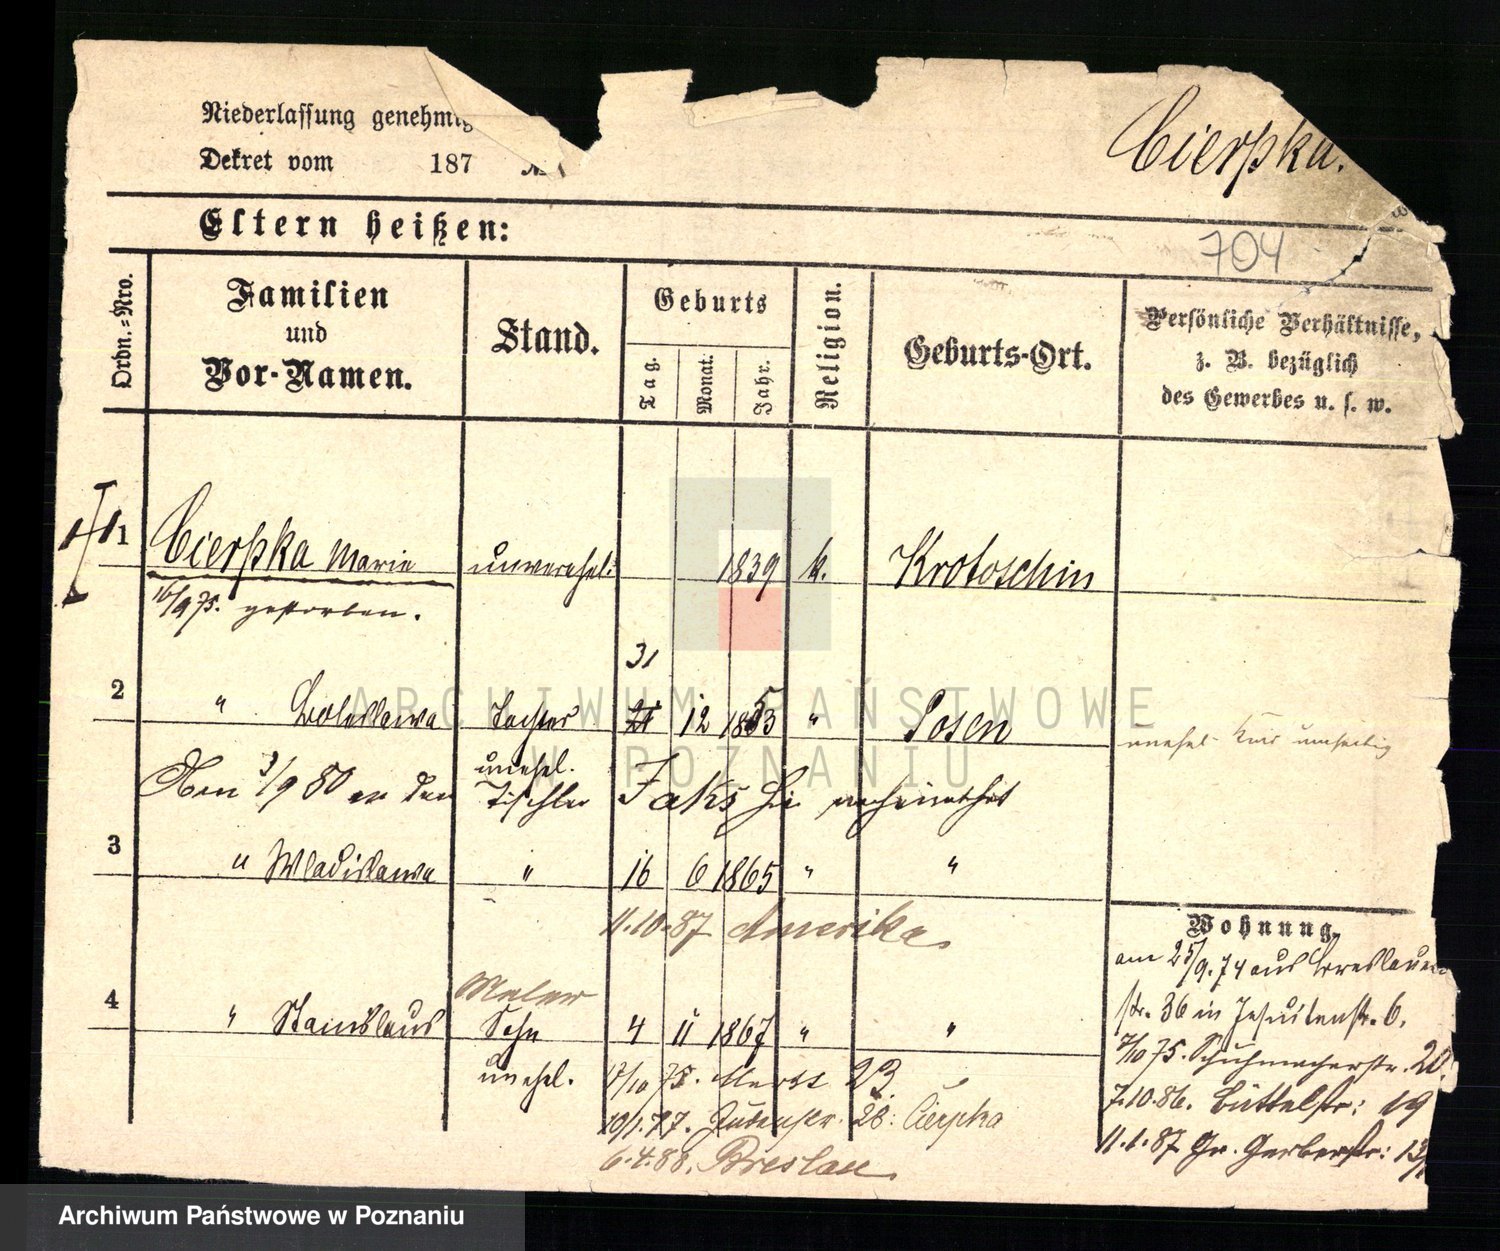 Niederlassung genehmig
Cierpka.
Dekret vom 187 No
Eltern heißen:
704
Ordn.-Nro.
Familien
und
Vor-Namen.
Stand.
Geburts
Tag.
Monat.
Jahr.
Religion.
Geburts-Ort.
Persönliche Verhältnisse,
z. B. bezüglich
des Gewerbes u. s. w.
1 Cierpka Marie unverehel. 1839 k. Krotoschin
16/9 75. gestorben.
31
2 " Boleslawa Tochter 21 12 1853 " Posen
unehel.
unehel. Kind umseitig
Am 3/9 80 an den Tischler Jaks hie verheirathet
3 " Wladislawa " 16 6 1865 " "
11.10.87 Amerika.
Wohnung.
am 25/9.74 aus Breslauer
str. 36 in Jesuitenstr. 6.
7/10 75. Schuhmacherstr. 20.
7.10.86. Büttelstr: 19
11.1.87. Gr. Gerberstr: 13/
Maler
4 " Stanislaus Sohn 4 11 1867 " "
unehel.
Markt 23.
10/1.77. Judenstr. 28. Cierpka
6.4.88. Breslau.
ARCHIWUM PAŃSTWOWE
W POZNANIU
Archiwum Państwowe w Poznaniu